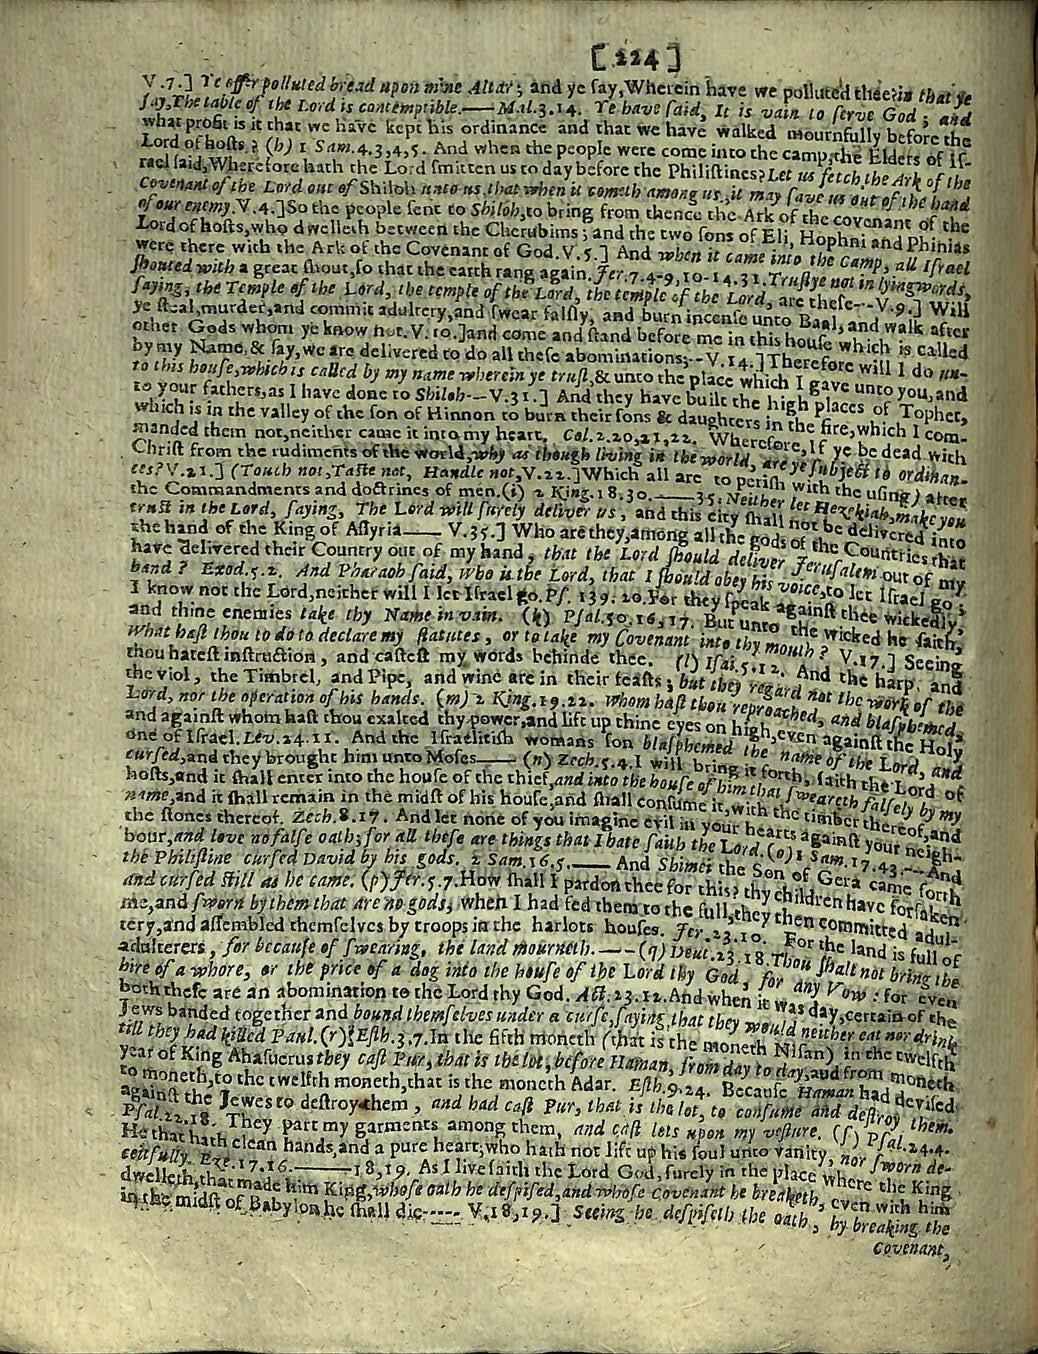 [ 224 ]
V.7.] Ye offer polluted bread upon mine Altar; and ye ſay,Wherein have we polluted thee? in that ye
ſay,The table of the Lord is contemptible.——Mal.3.14. Ye have ſaid, It is vain to ſerve God; and
what profit is it that we have kept his ordinance and that we have walked mournfully before the
Lord of hoſts? (h) 1 Sam.4.3,4,5. And when the people were come into the camp,the Elders of Iſ-
rael ſaid,Wherefore hath the Lord ſmitten us to day before the Philiſtines?Let us fetch the Ark of the
Covenant of the Lord out of Shiloh unto us,that when it cometh among us,it may ſave us out of the hand
of our enemy.V.4.]So the people ſent to Shiloh,to bring from thence the Ark of the covenant of the
Lord of hoſts,who dwelleth between the Cherubims; and the two ſons of Eli, Hophni and Phinias
were there with the Ark of the Covenant of God.V.5.] And when it came into the Camp, all Iſrael
ſhouted with a great ſhout,ſo that the earth rang again.Jer.7.4-9,10-14.31.Truſt ye not in lying words,
ſaying, the Temple of the Lord, the temple of the Lord, the temple of the Lord, are theſe--V.9.] Will
ye ſteal,murder,and commit adultery,and ſwear falſly, and burn incenſe unto Baal,and walk after
other Gods whom ye know not.V.10.]and come and ſtand before me in this houſe which is called
by my Name,& ſay,we are delivered to do all theſe abominations;--V.14.]Therefore will I do un-
to this houſe,which is called by my name wherein ye truſt,& unto the place which I gave unto you,and
to your fathers,as I have done to Shiloh--V.31.] And they have built the high places of Tophet,
which is in the valley of the ſon of Hinnon to burn their ſons & daughters in the fire,which I com-
manded them not,neither came it into my heart, Col.2.20,21,22. Wherefore,If ye be dead with
Chriſt from the rudiments of the world,why as though living in the world, are ye ſubject to ordinan-
ces?V.21.] (Touch not,Taſte not, Handle not,V.22.]Which all are to periſh with the uſing) after
the Commandments and doctrines of men.(i) 2 King.18.30.——35.Neither let Hezekiah,make you
truſt in the Lord, ſaying, The Lord will ſurely deliver us, and this city ſhall not be delivered into
the hand of the King of Aſſyria—— V.35.] Who are they,among all the gods of the Countries that
have delivered their Country out of my hand, that the Lord ſhould deliver Jeruſalem out of my
hand? Exod.5.2. And Pharaoh ſaid, Who is the Lord, that I ſhould obey his voice,to let Iſrael go;
I know not the Lord,neither will I let Iſrael go.Pſ. 139.20.For they ſpeak againſt thee wickedly,
and thine enemies take thy Name in vain. (k) Pſal.50.16,17. But unto the wicked he ſaith,
What haſt thou to do to declare my ſtatutes, or to take my Covenant into thy mouth? V.17.] Seeing
thou hateſt inſtruction, and caſteſt my words behinde thee. (l) Iſai.5.12. And the harp, and
the viol, the Timbrel, and Pipe, and wine are in their feaſts; but they regard not the work of the
Lord, nor the operation of his hands. (m) 2 King.19.22. Whom haſt thou reproached, and blaſphemed,
and againſt whom haſt thou exalted thy power,and lift up thine eyes on high,even againſt the Holy
one of Iſrael.Lev.24.11. And the Iſraelitiſh womans ſon blaſphemed the name of the Lord, and
curſed,and they brought him unto Moſes—— (n) Zech.5.4.I will bring it forth, ſaith the Lord of
hoſts,and it ſhall enter into the houſe of the thief,and into the houſe of him that ſweareth falſely by my
name,and it ſhall remain in the midſt of his houſe,and ſhall conſume it,with the timber thereof,and
the ſtones thereof. Zech.8.17. And let none of you imagine evil in your hearts againſt your neigh-
bour,and love no falſe oath; for all theſe are things that I hate ſaith the Lord.(o)1 Sam.17.43.--And
the Philiſtine curſed David by his gods. 2 Sam.16.5.—— And Shimei the Son of Gera came forth
and curſed ſtill as he came. (p)Jer.5.7.How ſhall I pardon thee for this? thy children have forſaken
me,and ſworn by them that are no gods; when I had fed them to the full,they then committed adul-
tery,and aſſembled themſelves by troops in the harlots houſes. Jer.23.10. For the land is full of
adulterers, for becauſe of ſwearing, the land mourneth.——(q) Deut.23.18.Thou ſhalt not bring the
hire of a whore, or the price of a dog into the houſe of the Lord thy God, for any Vow: for even
both theſe are an abomination to the Lord thy God. Act.23.12.And when it was day,certain of the
Jews banded together and bound themſelves under a curſe,ſaying,that they would neither eat nor drink
till they had killed Paul.(r)Eſth.3.7.In the fifth moneth (that is the moneth Niſan) in the twelfth
year of King Ahaſuerus they caſt Pur,that is the lot,before Haman, from day to day,and from moneth
to moneth,to the twelfth moneth,that is the moneth Adar. Eſth.9.24. Becauſe Haman had deviſed
againſt the Jewes to deſtroy them, and had caſt Pur, that is the lot, to conſume and deſtroy them.
Pſal.22.18. They part my garments among them, and caſt lots upon my veſture. (ſ) Pſal.24.4.
He that hath clean hands,and a pure heart;who hath not lift up his ſoul unto vanity, nor ſworn de-
ceitfully. Eze.17.16.——18,19. As I live ſaith the Lord God,ſurely in the place where the King
dwelleth,that made him King,whoſe oath he deſpiſed,and whoſe Covenant he breaketh, even with him
in the midſt of Babylon he ſhall die----- V.18,19.] Seeing he deſpiſeth the oath, by breaking the
Covenant,